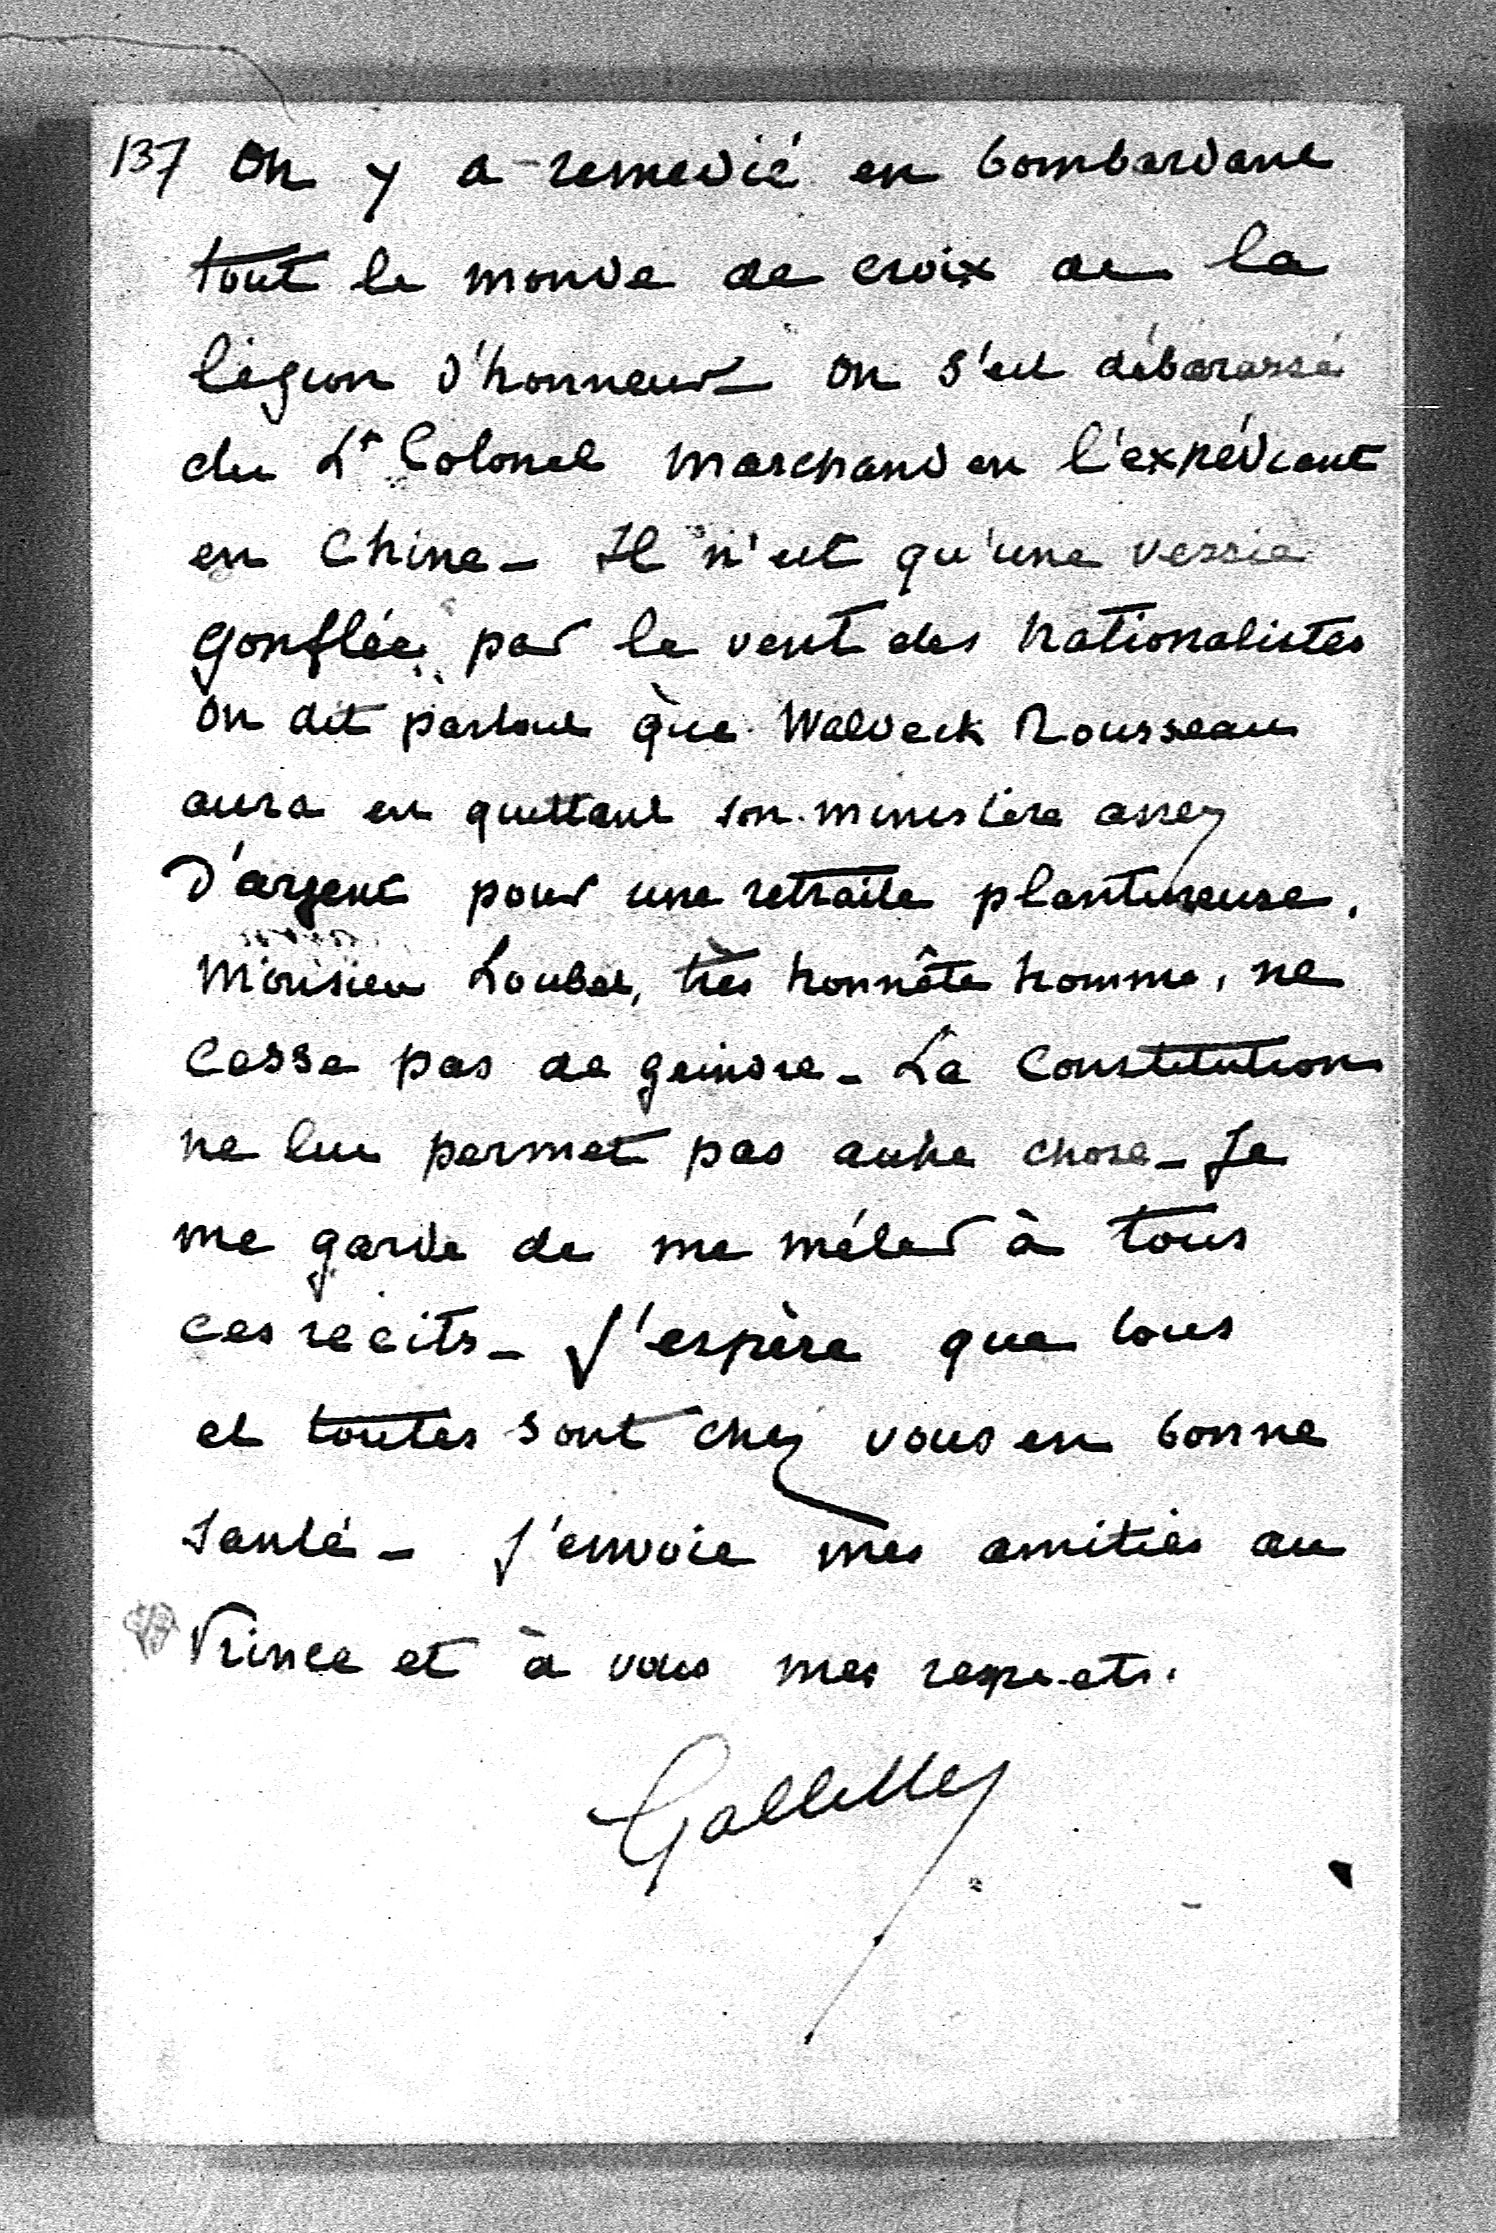 137 On y a remedié en bombardant
tout le monde de croix de la
légion d'honneur - On s'est débarassé
du Lt Colonel Marchand en l'expédiant
en Chine - Il n'est qu'une vessie
gonflée par le vent des nationalistes
On dit partout que Waldeck Rousseau
aura en quittant son ministère assez
d'argent pour une retraite plantureuse.
Monsieur Loubet, très honnête homme, ne
cesse pas de geindre - La Constitution
ne lui permet pas autre chose - Je
me garde de me mêler à tous
ces recits - J'espère que tous
et toutes sont chez vous en bonne
santé - J'envoie mes amitiés au
Prince et à vous mes respects.
Galliffet